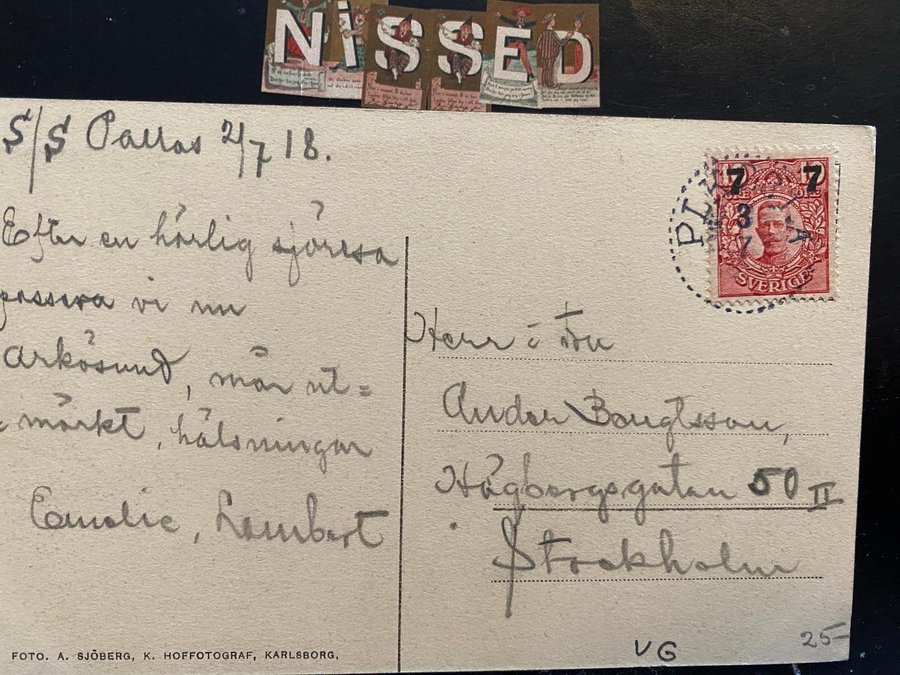 NiSSED
S/S Pallas 2/7 18.
Efter en härlig sjöresa
passera vi nu
Arkösund, mår ut=
märkt, hälsningar
Emelie, Lambert
7 7
SVERIGE
3
7
Herr & Fru
Andor Bengtsson,
Högbergsgatan 50 II
Stockholm
FOTO. A. SJÖBERG, K. HOFFOTOGRAF, KARLSBORG.
VG
25-